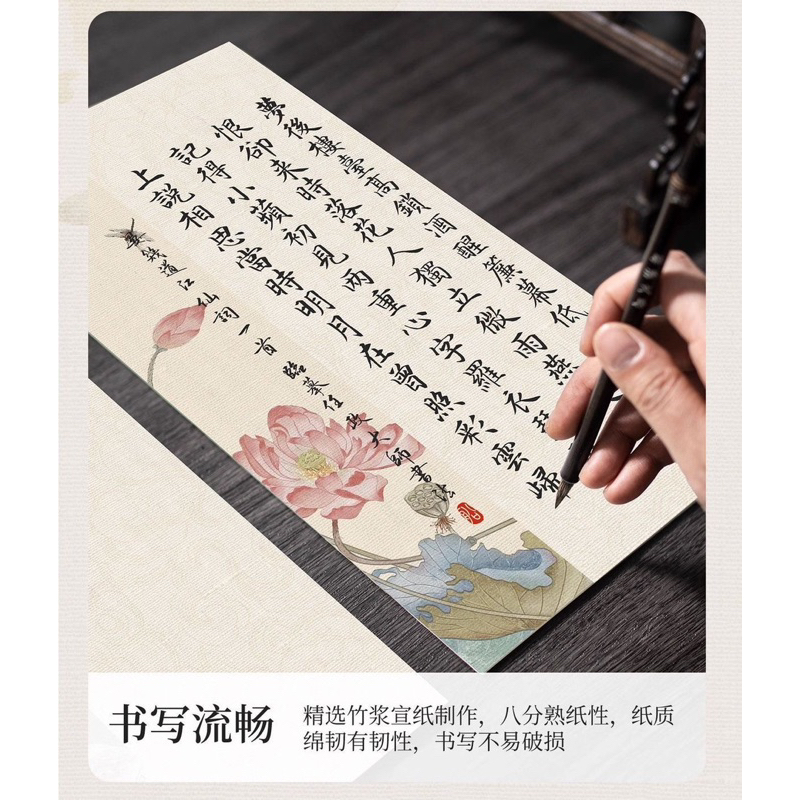 夢後樓臺高鎖酒醒簾幕低
恨卻来時落花人獨立微雨燕
記得小蘋初見两重心字羅衣琵
上説相思當時明月在曾照彩雲歸
晏幾道江仙詞一首臨摹任政大師書法
书写流畅
精选竹浆宣纸制作，八分熟纸性，纸质
绵韧有韧性，书写不易破损